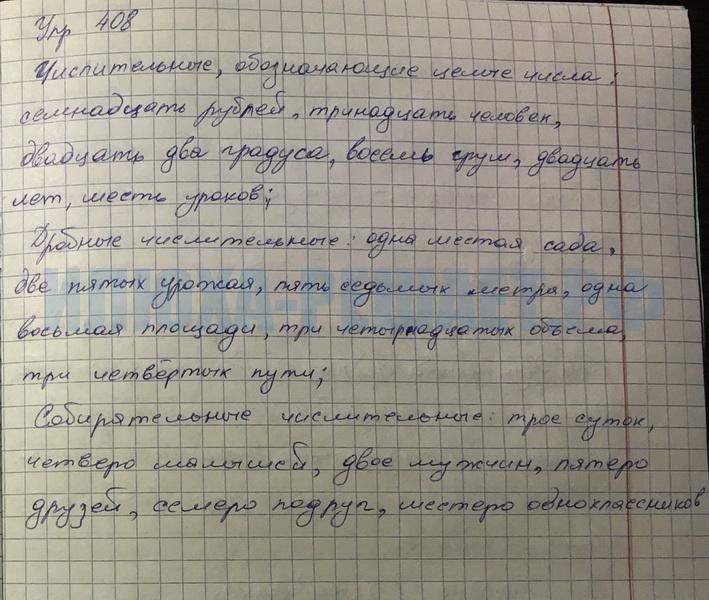 Упр 408
Числительные, обозначающие целые числа:
семнадцать рублей, тринадцать человек,
двадцать два градуса, восемь груш, двадцать
лет, шесть уроков;
Дробные числительные: одна шестая сада,
две пятых урожая, пять седьмых метра, одна
восьмая площади, три четырнадцатых объема,
три четвёртых пути;
Собирательные числительные: трое суток,
четверо малышей, двое мужчин, пятеро
друзей, семеро подруг, шестеро одноклассников